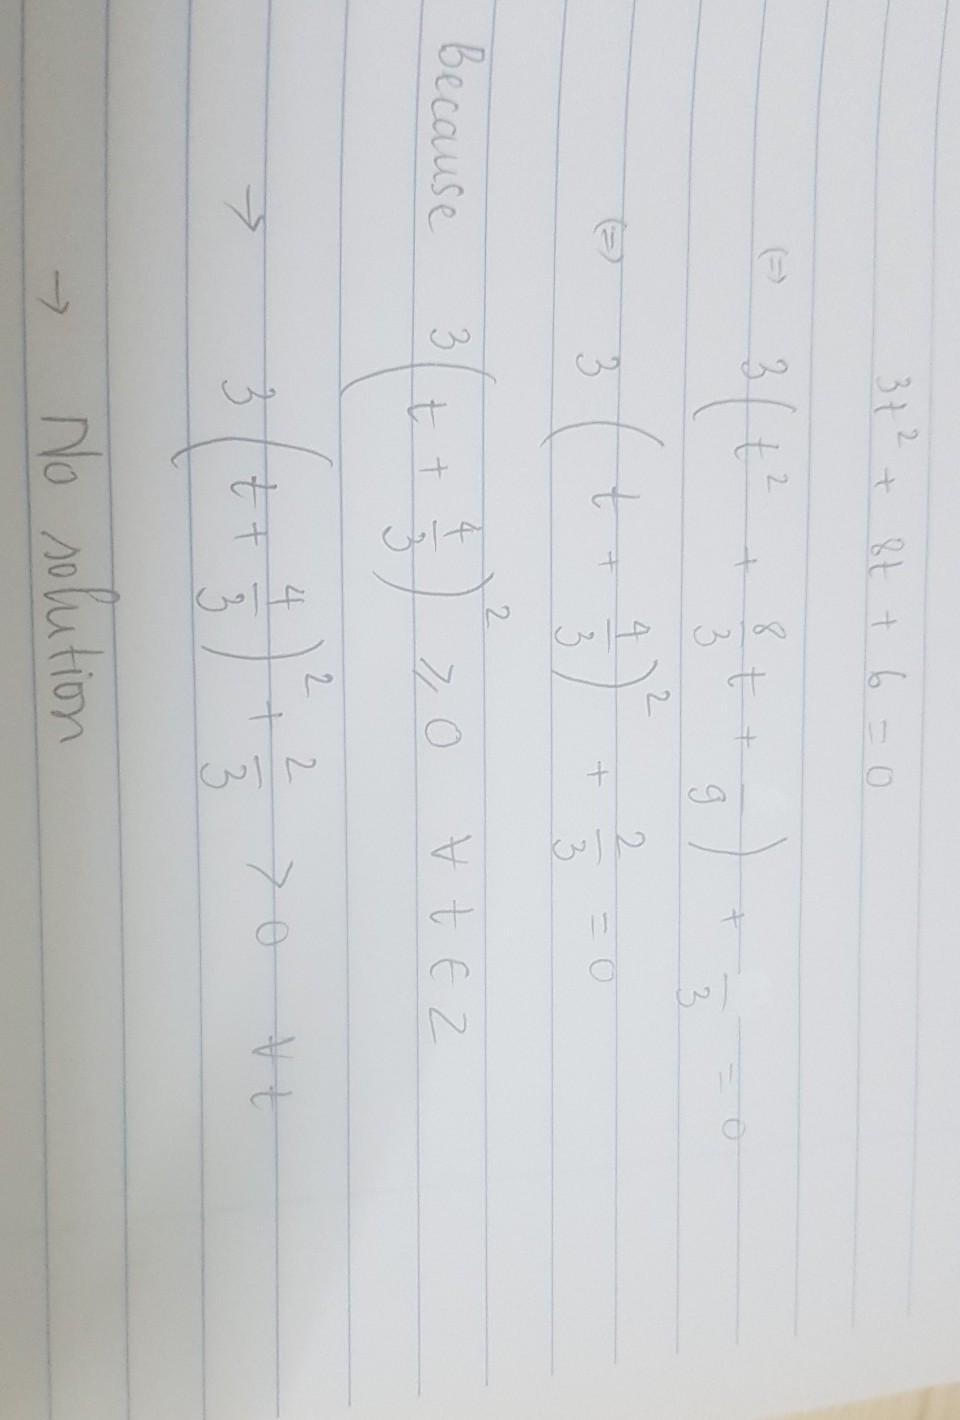 3t² + 8t + 6 = 0
(=) 3(t² + 8/3 t + /9) + /3 = 0
(=) 3(t + 4/3)² + 2/3 = 0
Because 3(t + 4/3)² ⩾ 0 ∀ t ∈ Z
→ 3(t + 4/3)² + 2/3 > 0 ∀ t
→ No solution